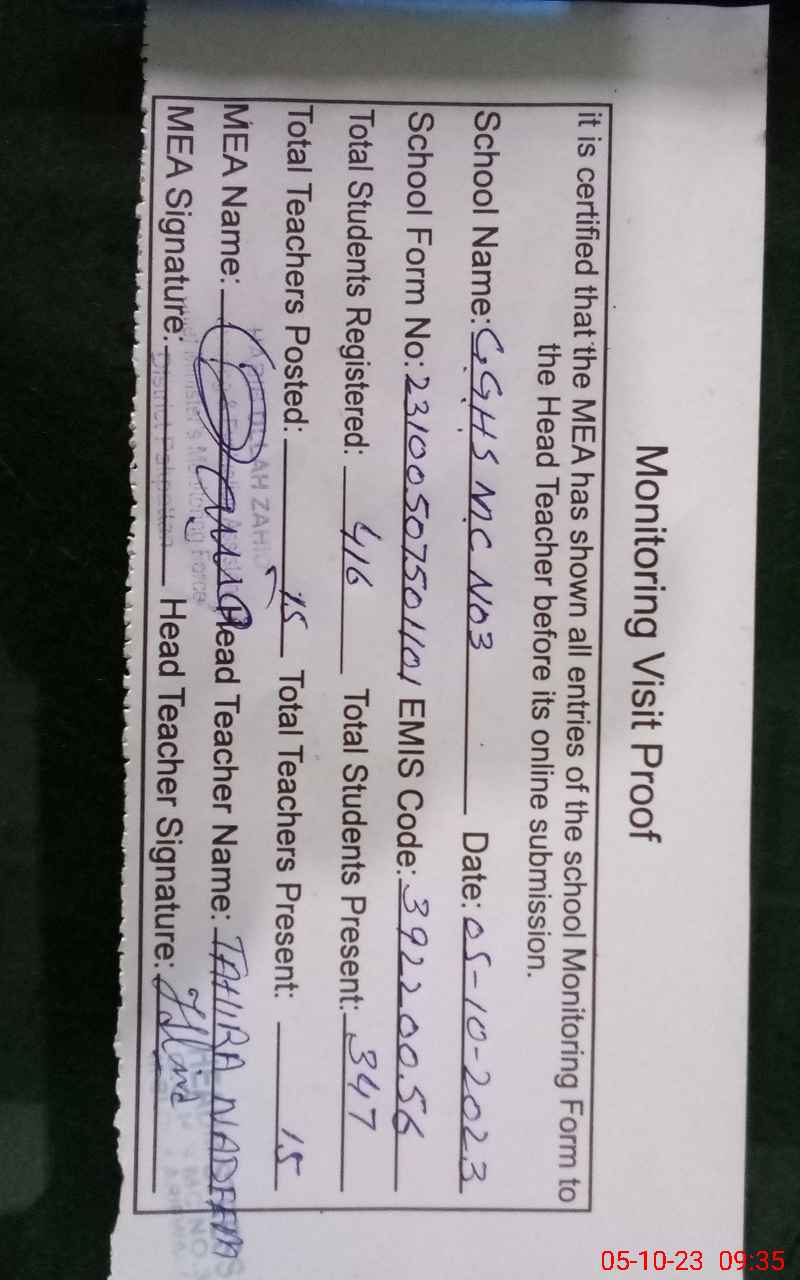 Monitoring Visit Proof
it is certified that the MEA has shown all entries of the school Monitoring Form to
the Head Teacher before its online submission.
School Name: GGHS MC NO3 Date: 05-10-2023
School Form No: 23100507501101 EMIS Code: 39220056
Total Students Registered: 416 Total Students Present: 347
Total Teachers Posted: 15 Total Teachers Present: 15
MEA Name: Head Teacher Name: TAHIRA NADEEM
MEA Signature: Head Teacher Signature:
ZAHID
District Pakpattan
05-10-23 09:35